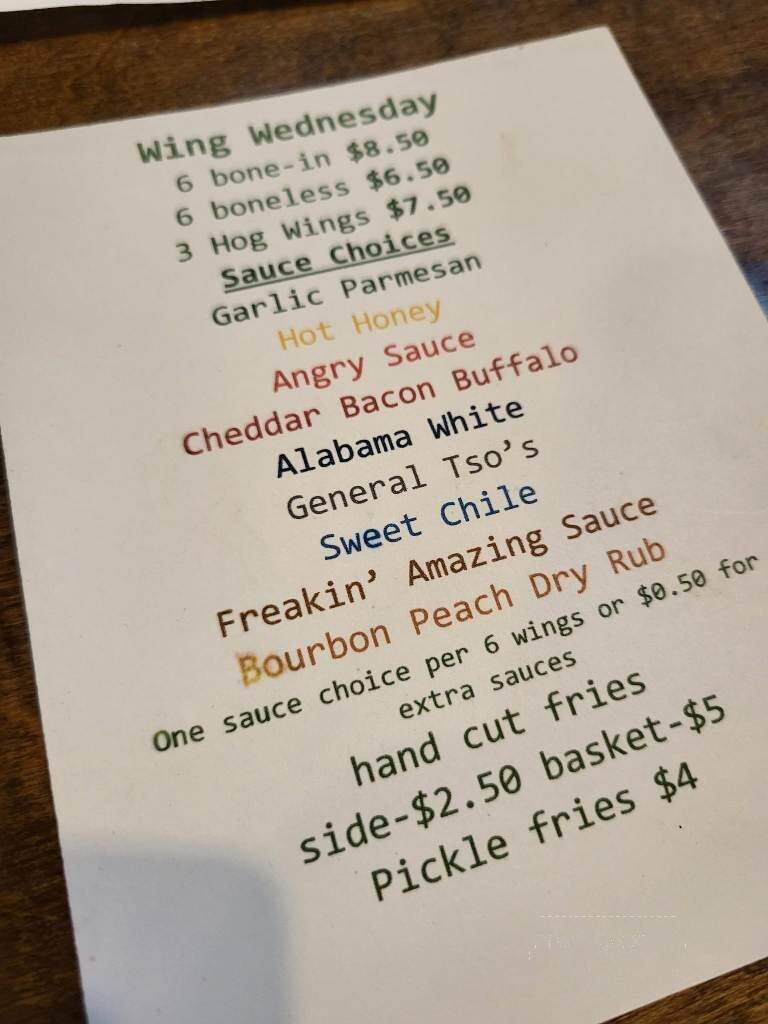 Wing Wednesday
6 bone-in $8.50
6 boneless $6.50
3 Hog Wings $7.50
Sauce Choices
Garlic Parmesan
Hot Honey
Angry Sauce
Cheddar Bacon Buffalo
Alabama White
General Tso's
Sweet Chile
Freakin' Amazing Sauce
Bourbon Peach Dry Rub
One sauce choice per 6 wings or $0.50 for
extra sauces
hand cut fries
side-$2.50 basket-$5
Pickle fries $4